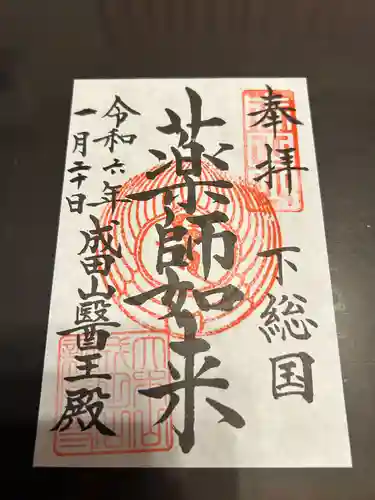 奉拝
下総国
薬師如来
令和六年
一月二十日
成田山醫王殿